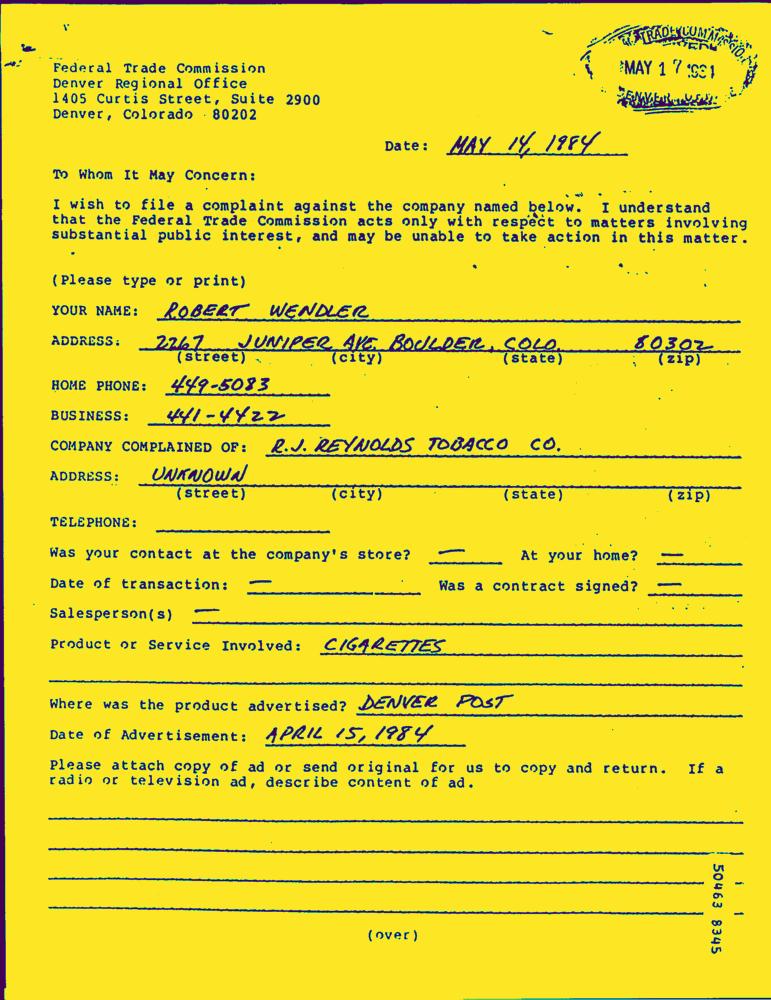 Federal Trade Commission
Denver Regional Office
1405 Curtis Street, Suite 2900
Denver, Colorado 80202
MAY 17
Date: MAY 14, 1984
To Whom It May Concern:
I wish to file a complaint against the company named below. I understand
that the Federal Trade Commission acts only with respect to matters involving
substantial public interest, and may be unable to take action in this matter.
(Please type or print)
YOUR NAME: ROBERT WENDLER
ADDRESS: 2267 JUNIPER AVE. BOULDER, COLO. 80302
(street) (city) (state) (zip)
HOME PHONE: 449-5083
BUSINESS: 441-4422
COMPANY COMPLAINED OF: R.J. REYNOLDS TOBACCO CO.
ADDRESS: UNKNOWN
(street) (city) (state) (zip)
TELEPHONE:
Was your contact at the company's store? — At your home? —
Date of transaction: — Was a contract signed? —
Salesperson(s) —
Product or Service Involved: CIGARETTES
Where was the product advertised? DENVER POST
Date of Advertisement: APRIL 15, 1984
Please attach copy of ad or send original for us to copy and return. If a
radio or television ad, describe content of ad.
(over)
50463 8345